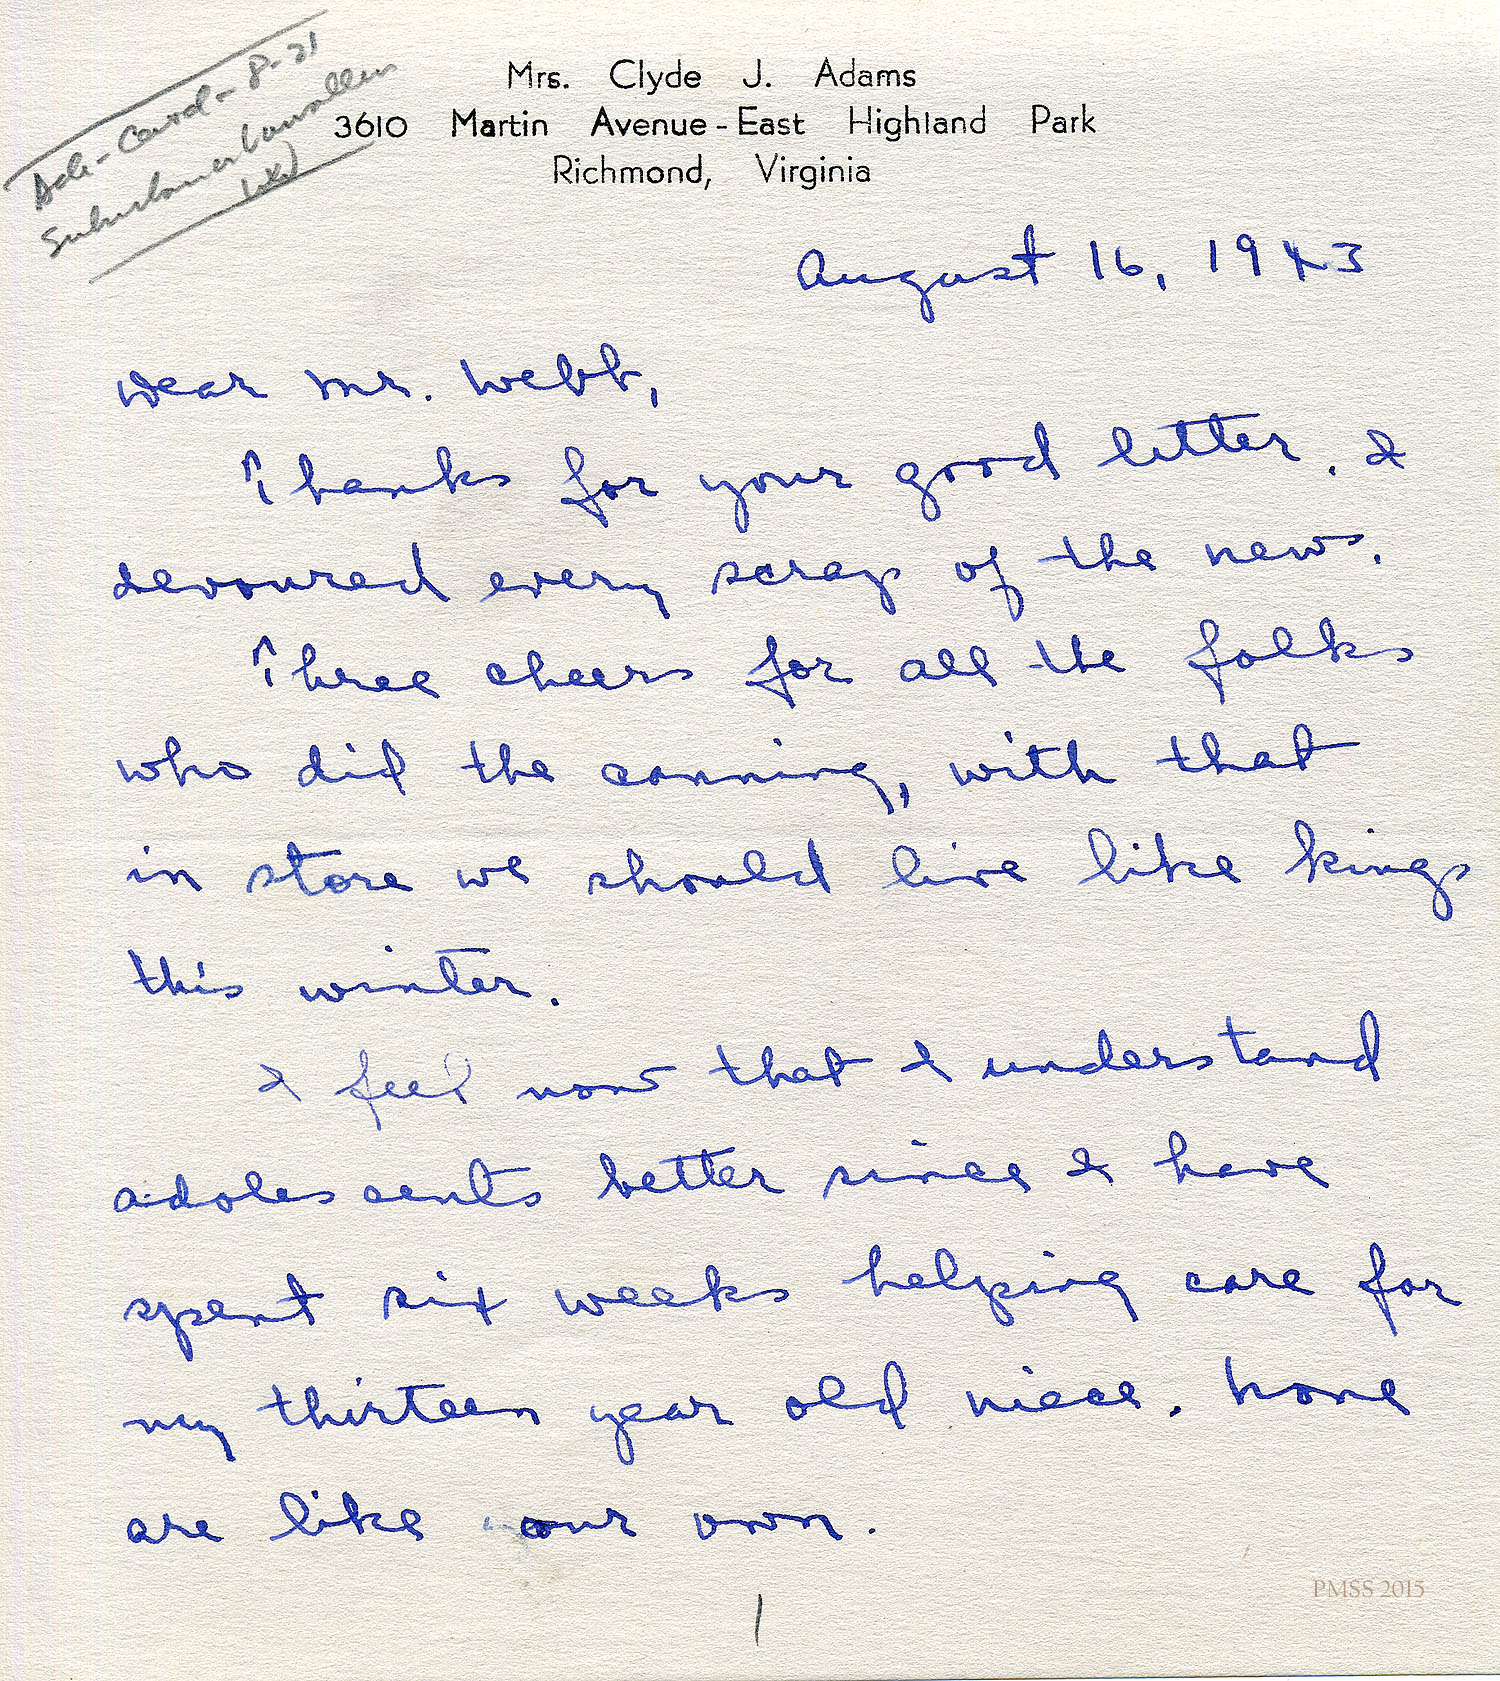 Mrs. Clyde J. Adams
3610 Martin Avenue - East Highland Park
Richmond, Virginia
Card - 8-21
August 16, 1943
Dear Mr. Webb,
Thanks for your good letter. I
devoured every scrap of the news.
Three cheers for all the folks
who did the canning, with that
in store we should live like kings
this winter.
I feel now that I understand
adolescents better since I have
spent six weeks helping care for
my thirteen year old niece. None
are like our own.
1
PMSS 2015